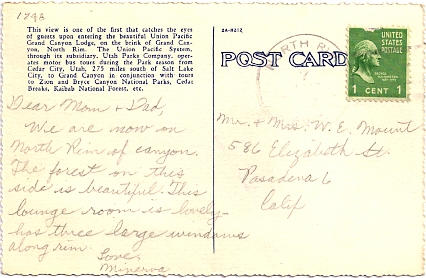 1748
This view is one of the first that catches the eyes
of guests upon entering the beautiful Union Pacific
Grand Canyon Lodge, on the brink of Grand Can-
yon, North Rim. The Union Pacific System,
through its subsidiary, Utah Parks Company, oper-
ates motor bus tours during the Park season from
Cedar City, Utah, 275 miles south of Salt Lake
City, to Grand Canyon in conjunction with tours
to Zion and Bryce Canyon National Parks, Cedar
Breaks, Kaibab National Forest, etc.
Dear Mom + Dad,
We are now on
North Rim of canyon.
The forest on this
side is beautiful. This
lounge room is lovely-
has three large windows
along rim.
Love,
Minerva
2A-H212
POST CARD
NORTH
UNITED
STATES
POSTAGE
GEORGE
WASHINGTON
1 CENT 1
Mr. + Mrs. W. E. Mount
586 Elizabeth St.
Pasadena 6
Calif